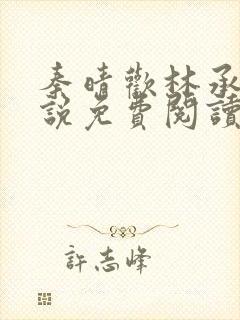 秦晴歡林承
說免費閱讀
許志峰